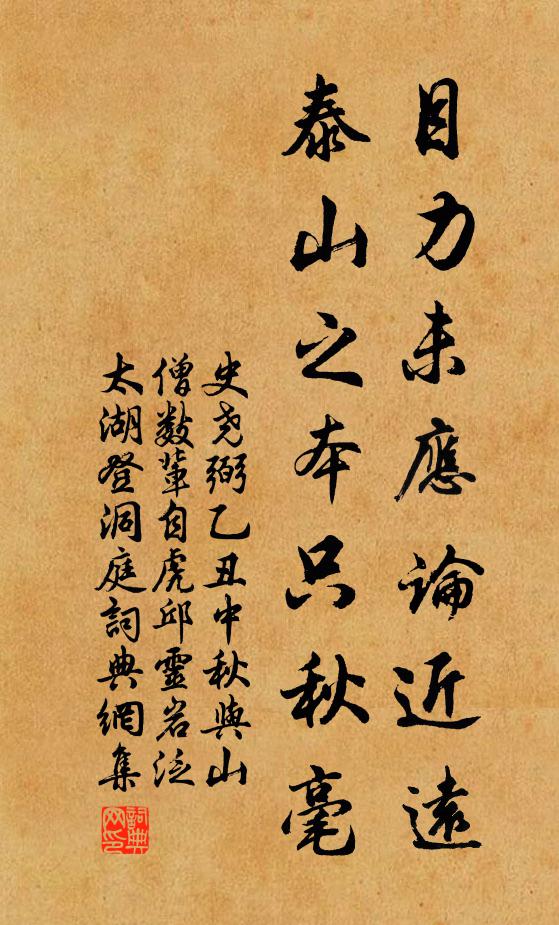 目力未應論近遠
泰山之本只秋毫
史堯弼乙丑中秋與山
僧數輩自虎邱靈岩泛
太湖登洞庭詞典網集
詞典
网印